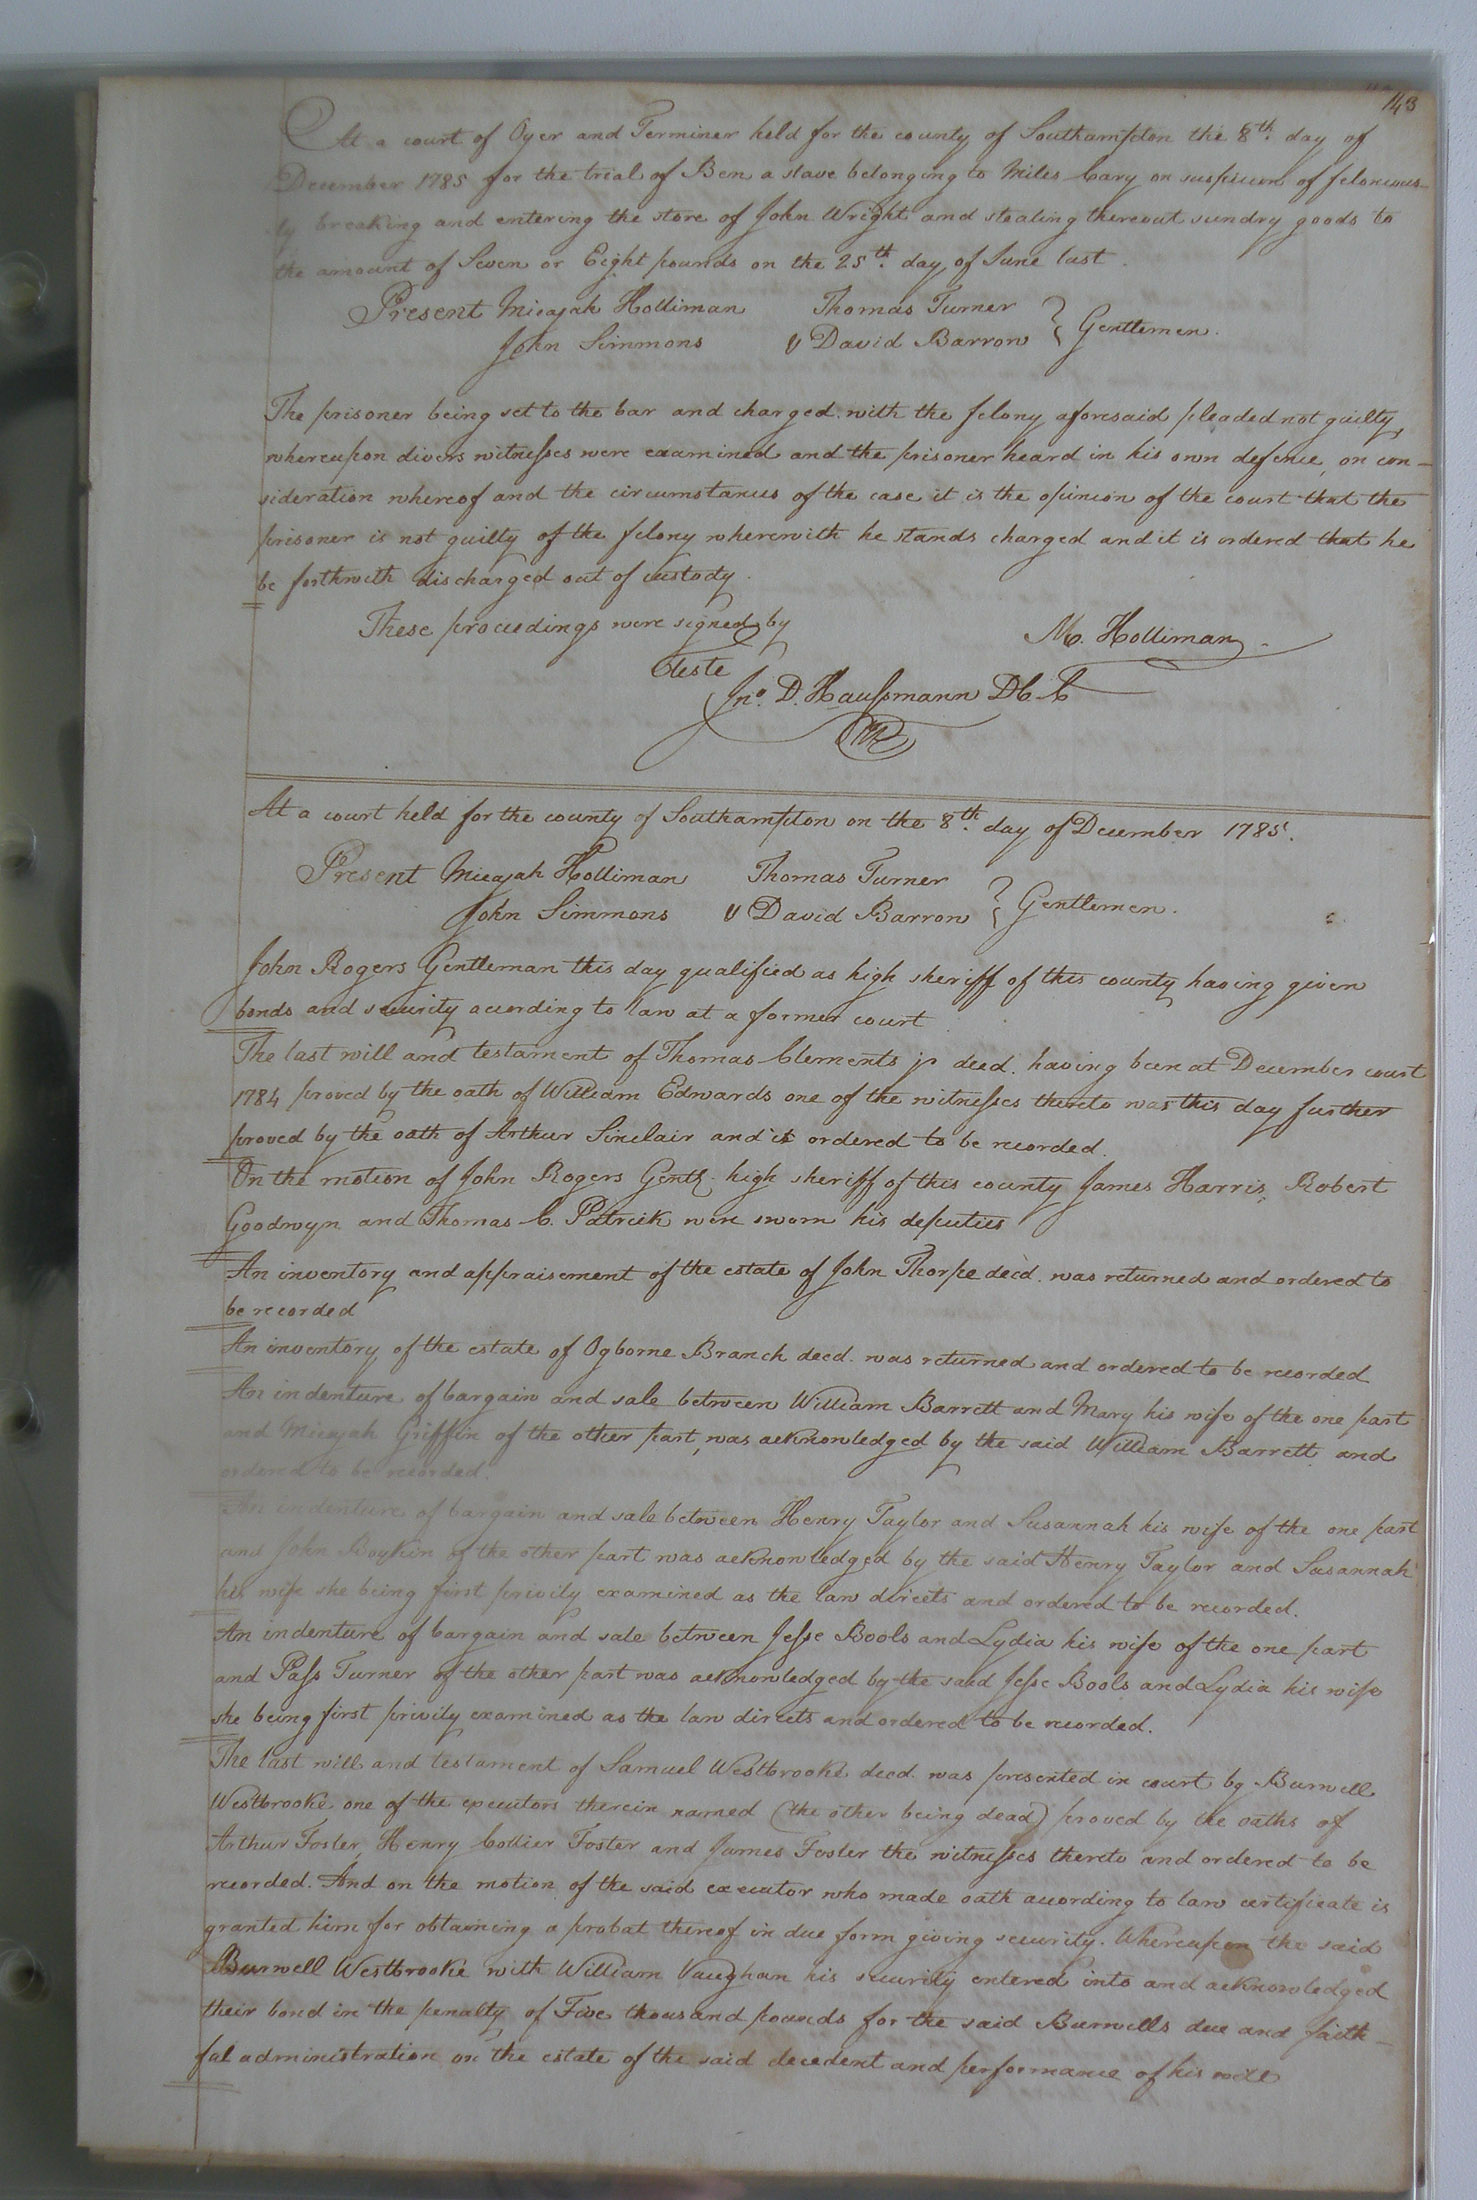 143
At a court of Oyer and Terminer held for the county of Southampton the 8th. day of
December 1785 for the trial of Ben a slave belonging to Miles Cary on suspicion of felonious-
ly breaking and entering the store of John Wright and stealing thereout sundry goods to
the amount of Seven or Eight pounds on the 25th. day of June last.
Present Micajah Holliman Thomas Turner } Gentlemen.
John Simmons & David Barron
The prisoner being set to the bar and charged with the felony aforesaid pleaded not guilty,
whereupon divers witnesses were examined and the prisoner heard in his own defence, on con-
sideration whereof and the circumstances of the case it is the opinion of the court that the
prisoner is not guilty of the felony wherewith he stands charged and it is ordered that he
be forthwith discharged out of custody.
These proceedings were signed by M. Holliman.
Teste
Jno. D. Haussmann DCC
At a court held for the county of Southampton on the 8th. day of December 1785.
Present Micajah Holliman Thomas Turner } Gentlemen.
John Simmons & David Barron
John Rogers Gentleman this day qualified as high sheriff of this county having given
bonds and security according to law at a former court
The last will and testament of Thomas Clements jr decd. having been at December court
1784 proved by the oath of William Edwards one of the witnesses thereto was this day further
proved by the oath of Arthur Sinclair and is ordered to be recorded.
On the motion of John Rogers Gentl. high sheriff of this county James Harris, Robert
Goodwyn and Thomas C. Patrick were sworn his deputies
An inventory and appraisement of the estate of John Thorpe decd. was returned and ordered to
be recorded
An inventory of the estate of Ogborne Branch decd. was returned and ordered to be recorded
An indenture of bargain and sale between William Barrett and Mary his wife of the one part
and Micajah Griffin of the other part, was acknowledged by the said William Barrett and
ordered to be recorded.
An indenture of bargain and sale between Henry Taylor and Susannah his wife of the one part
and John Boykin of the other part was acknowledged by the said Henry Taylor and Susannah
his wife she being first privily examined as the law directs and ordered to be recorded.
An indenture of bargain and sale between Jesse Bools and Lydia his wife of the one part
and Pass Turner of the other part was acknowledged by the said Jesse Bools and Lydia his wife
she being first privily examined as the law directs and ordered to be recorded.
The last will and testament of Samuel Westbrooke decd. was presented in court by Burwell
Westbrooke one of the executors therein named (the other being dead) proved by the oaths of
Arthur Foster, Henry Collier Foster and James Foster the witnesses thereto and ordered to be
recorded. And on the motion of the said executor who made oath according to law certificate is
granted him for obtaining a probat thereof in due form giving security. Whereupon the said
Burwell Westbrooke with William Vaughan his security entered into and acknowledged
their bond in the penalty of Five thousand pounds for the said Burwells due and faith-
ful administration on the estate of the said decedent and performance of his will